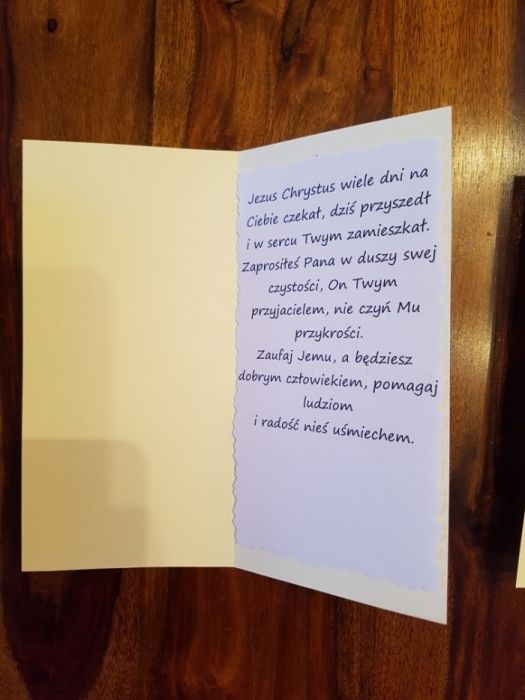 Jezus Chrystus wiele dni na
Ciebie czekał, dziś przyszedł
i w sercu Twym zamieszkał.
Zaprosiłeś Pana w duszy swej
czystości, On Twym
przyjacielem, nie czyń Mu
przykrości.
Zaufaj Jemu, a będziesz
dobrym człowiekiem, pomagaj
ludziom
i radość nieś uśmiechem.